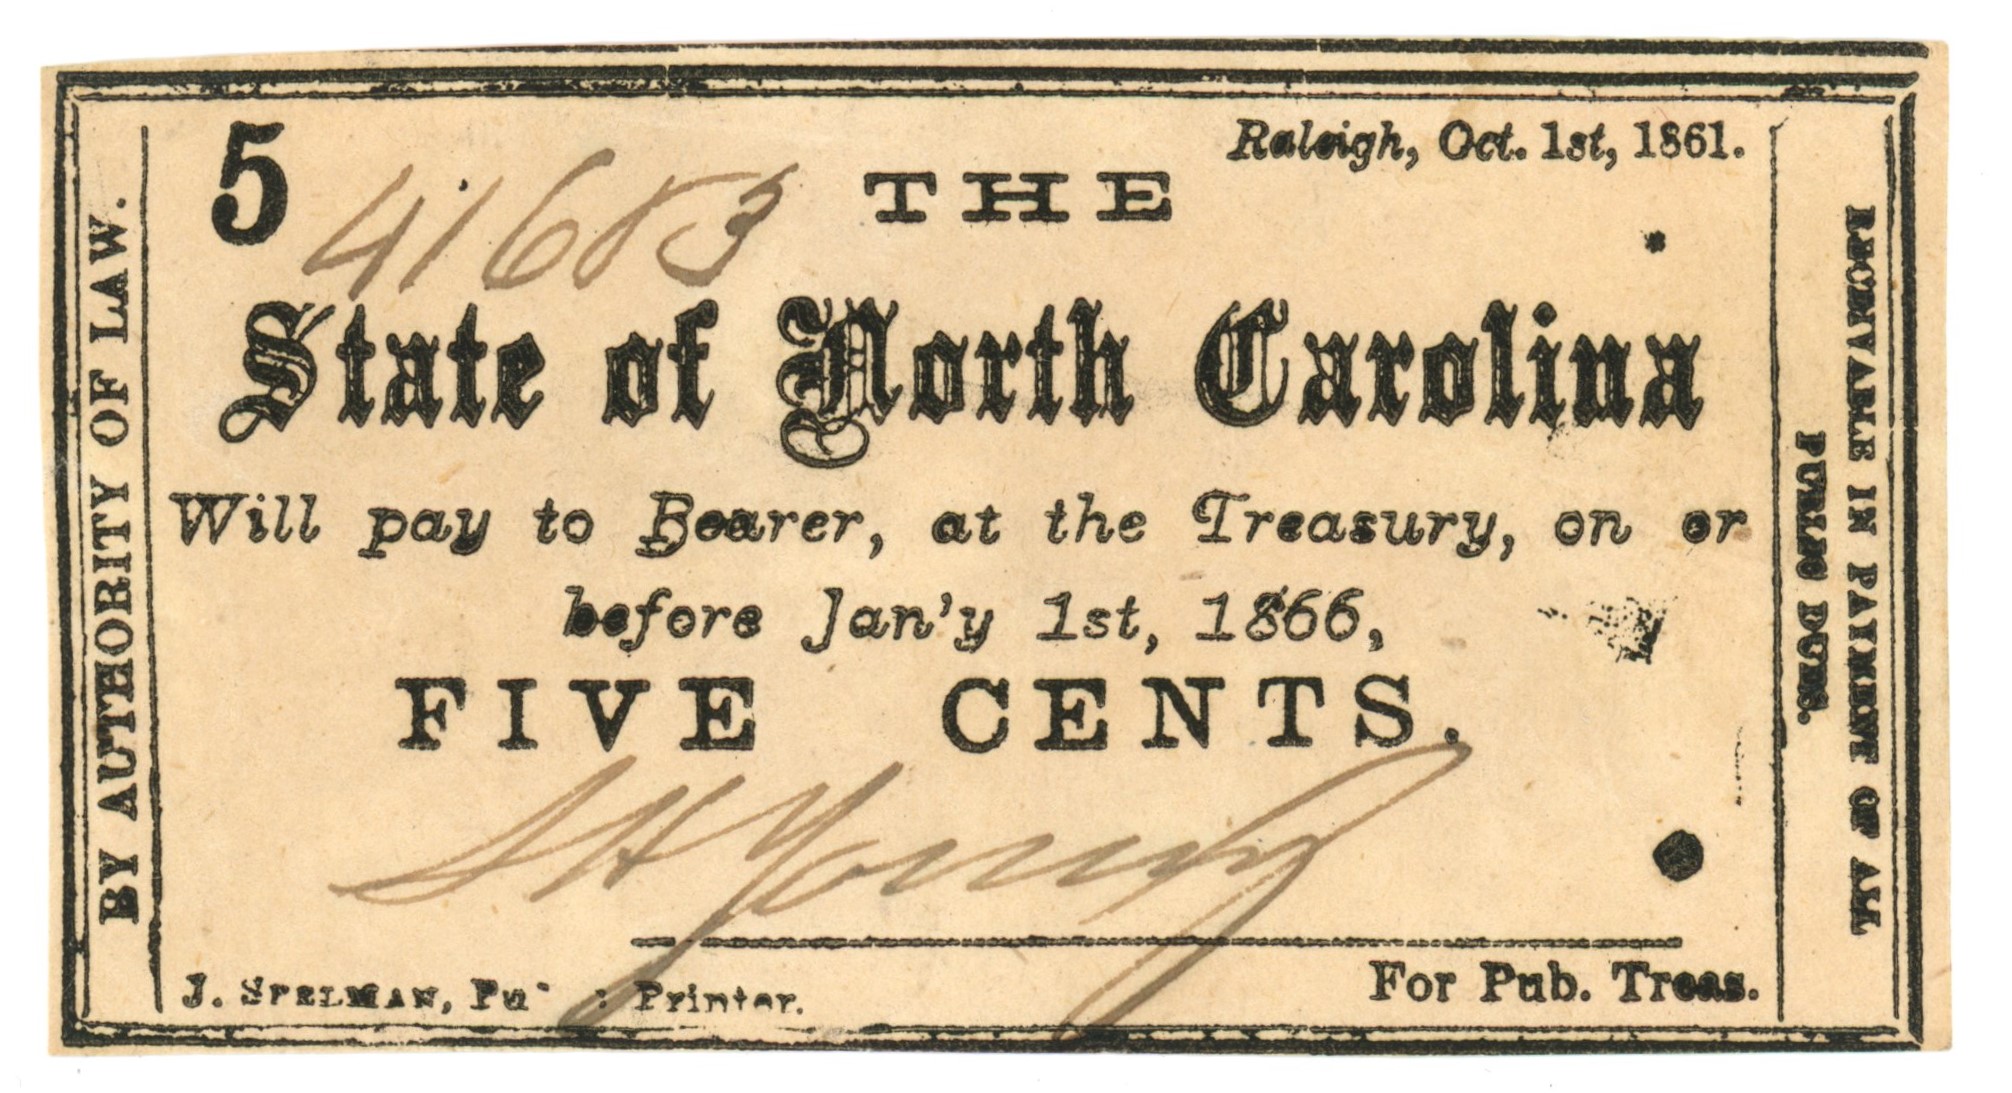 BY AUTHORITY OF LAW.
5
41683
Raleigh, Oct. 1st, 1861.
THE
State of North Carolina
Will pay to Bearer, at the Treasury, on or
before Jan'y 1st, 1866,
FIVE CENTS.
S H Young
For Pub. Treas.
J. SPELMAN, Printer.
RECEIVABLE IN PAYMENT OF ALL
PUBLIC DUES.